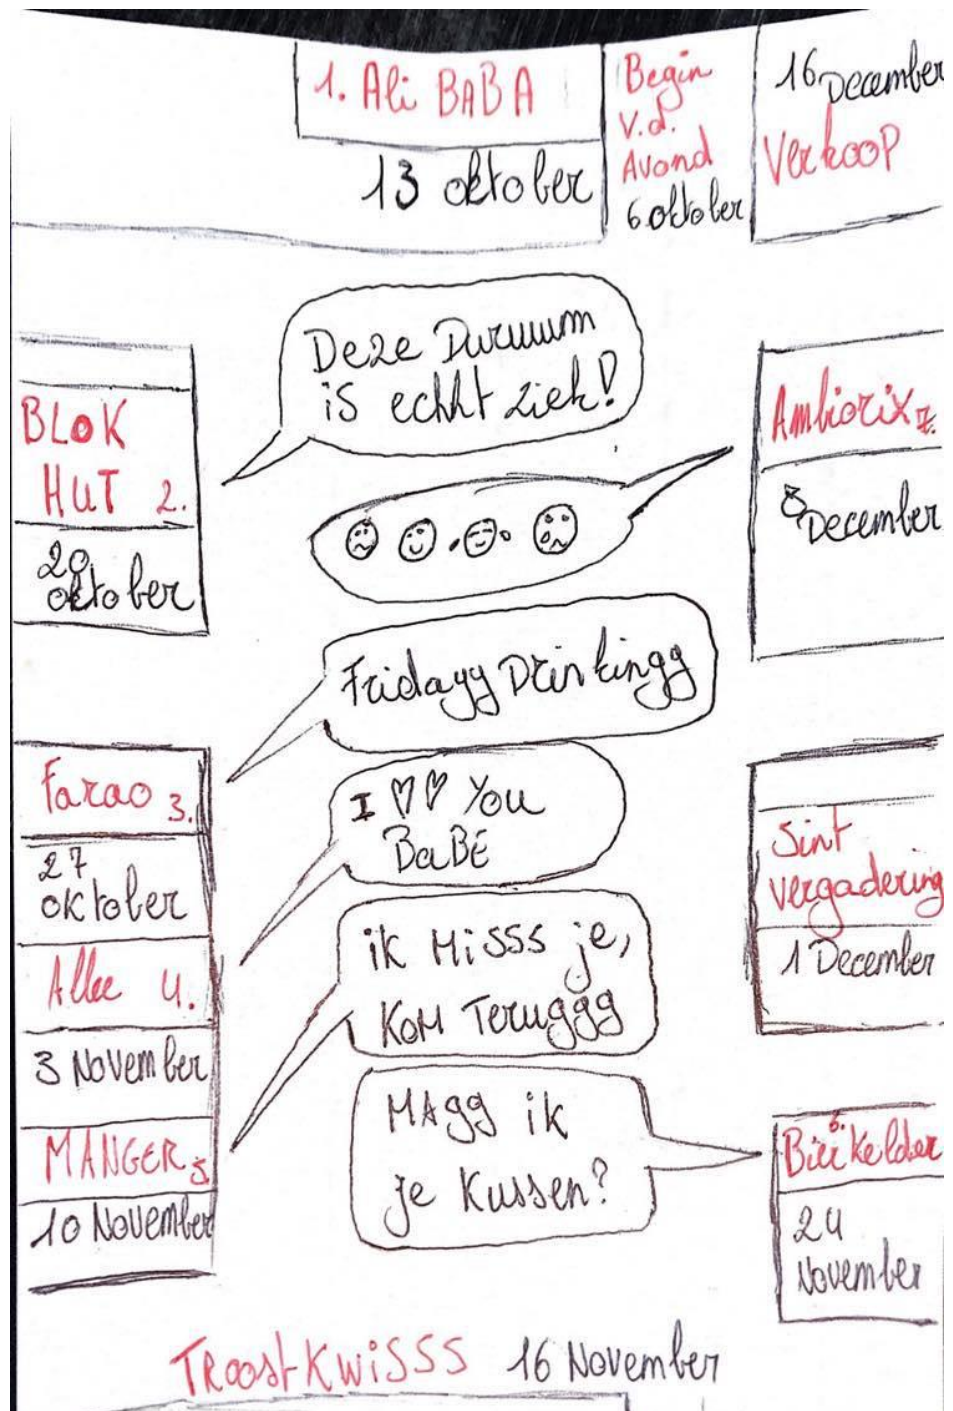 1. Ali BABA
13 oktober
Begin
V.d.
Avond
6 oktober
16 December
Verkoop
Deze Duruuum
is echht ziek!
BLOK
HUT 2.
20
oktober
Ambiorix 7.
8 December
Fridayy Drinkingg
Farao 3.
27
oktober
I ♡♡ You
BaBE
Sint
vergadering
1 December
Allee 4.
3 November
ik Misss je,
KOM Teruggg
MANGER 5.
10 November
MAgg ik
je Kussen?
6.
Bierkelder
24
November
TROOstKwiSSS 16 November